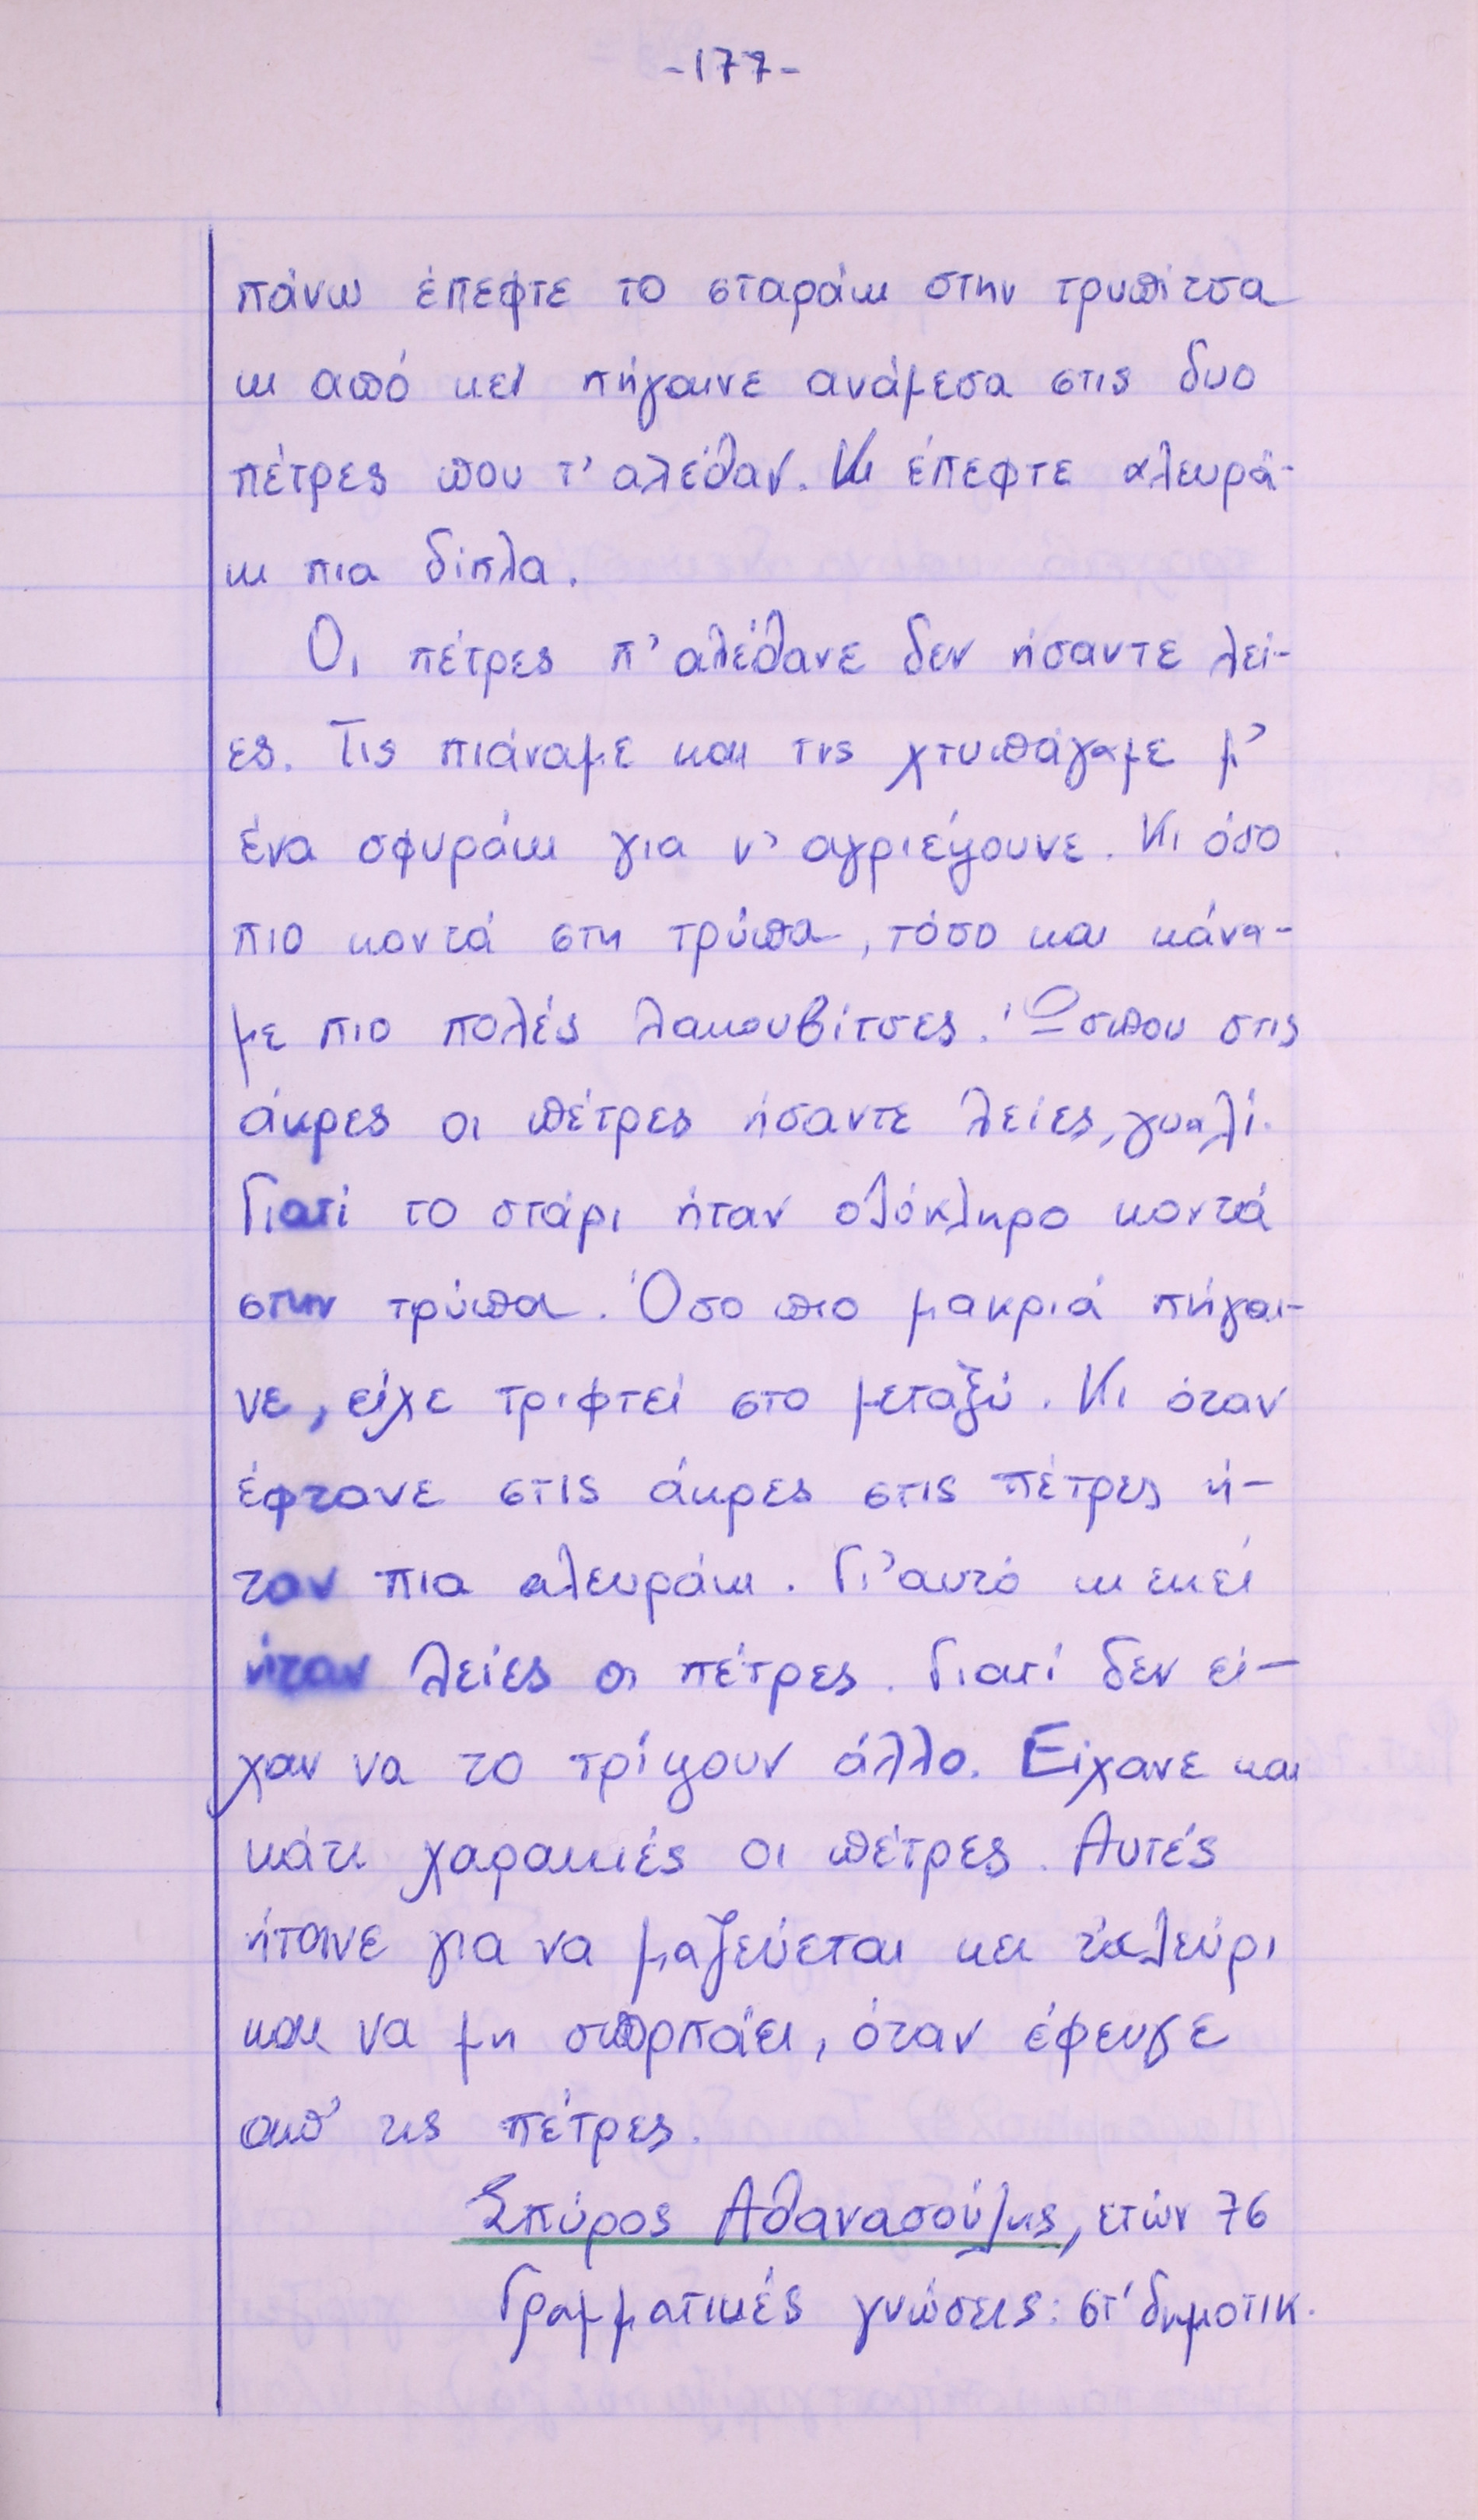 -177-
πάνω έπεφτε το σταράκι στην τρυπίτσα
κι από κει πήγαινε ανάμεσα στις δυο
πέτρες που τ' αλέθαν. Κι έπεφτε αλευρά-
κι πια δίπλα.
Οι πέτρες π' αλέθανε δεν ήσαντε λεί-
ες. Τις πιάναμε και τις χτυπάγαμε μ'
ένα σφυράκι για ν' αγριέψουνε. Κι όσο
πιο κοντά στη τρύπα, τόσο και κάνα-
με πιο πολές λακουβίτσες. Ώσπου στις
άκρες οι πέτρες ήσαντε λείες, γυαλί.
Γιατί το στάρι ήταν ολόκληρο κοντά
στην τρύπα. Όσο πιο μακριά πήγαι-
νε, είχε τριφτεί στο μεταξύ. Κι όταν
έφτανε στις άκρες στις πέτρες ή-
ταν πια αλευράκι. Γι' αυτό κι εκεί
ήταν λείες οι πέτρες. Γιατί δεν εί-
χαν να το τρίψουν άλλο. Είχανε και
κάτι χαρακιές οι πέτρες. Αυτές
ήτανε για να μαζεύεται και τ' αλεύρι
και να μη σκορπάει, όταν έφευγε
απ' τις πέτρες.
Σπύρος Αθανασούλης, ετών 76
Γραμματικές γνώσεις: στ' δημοτικ.